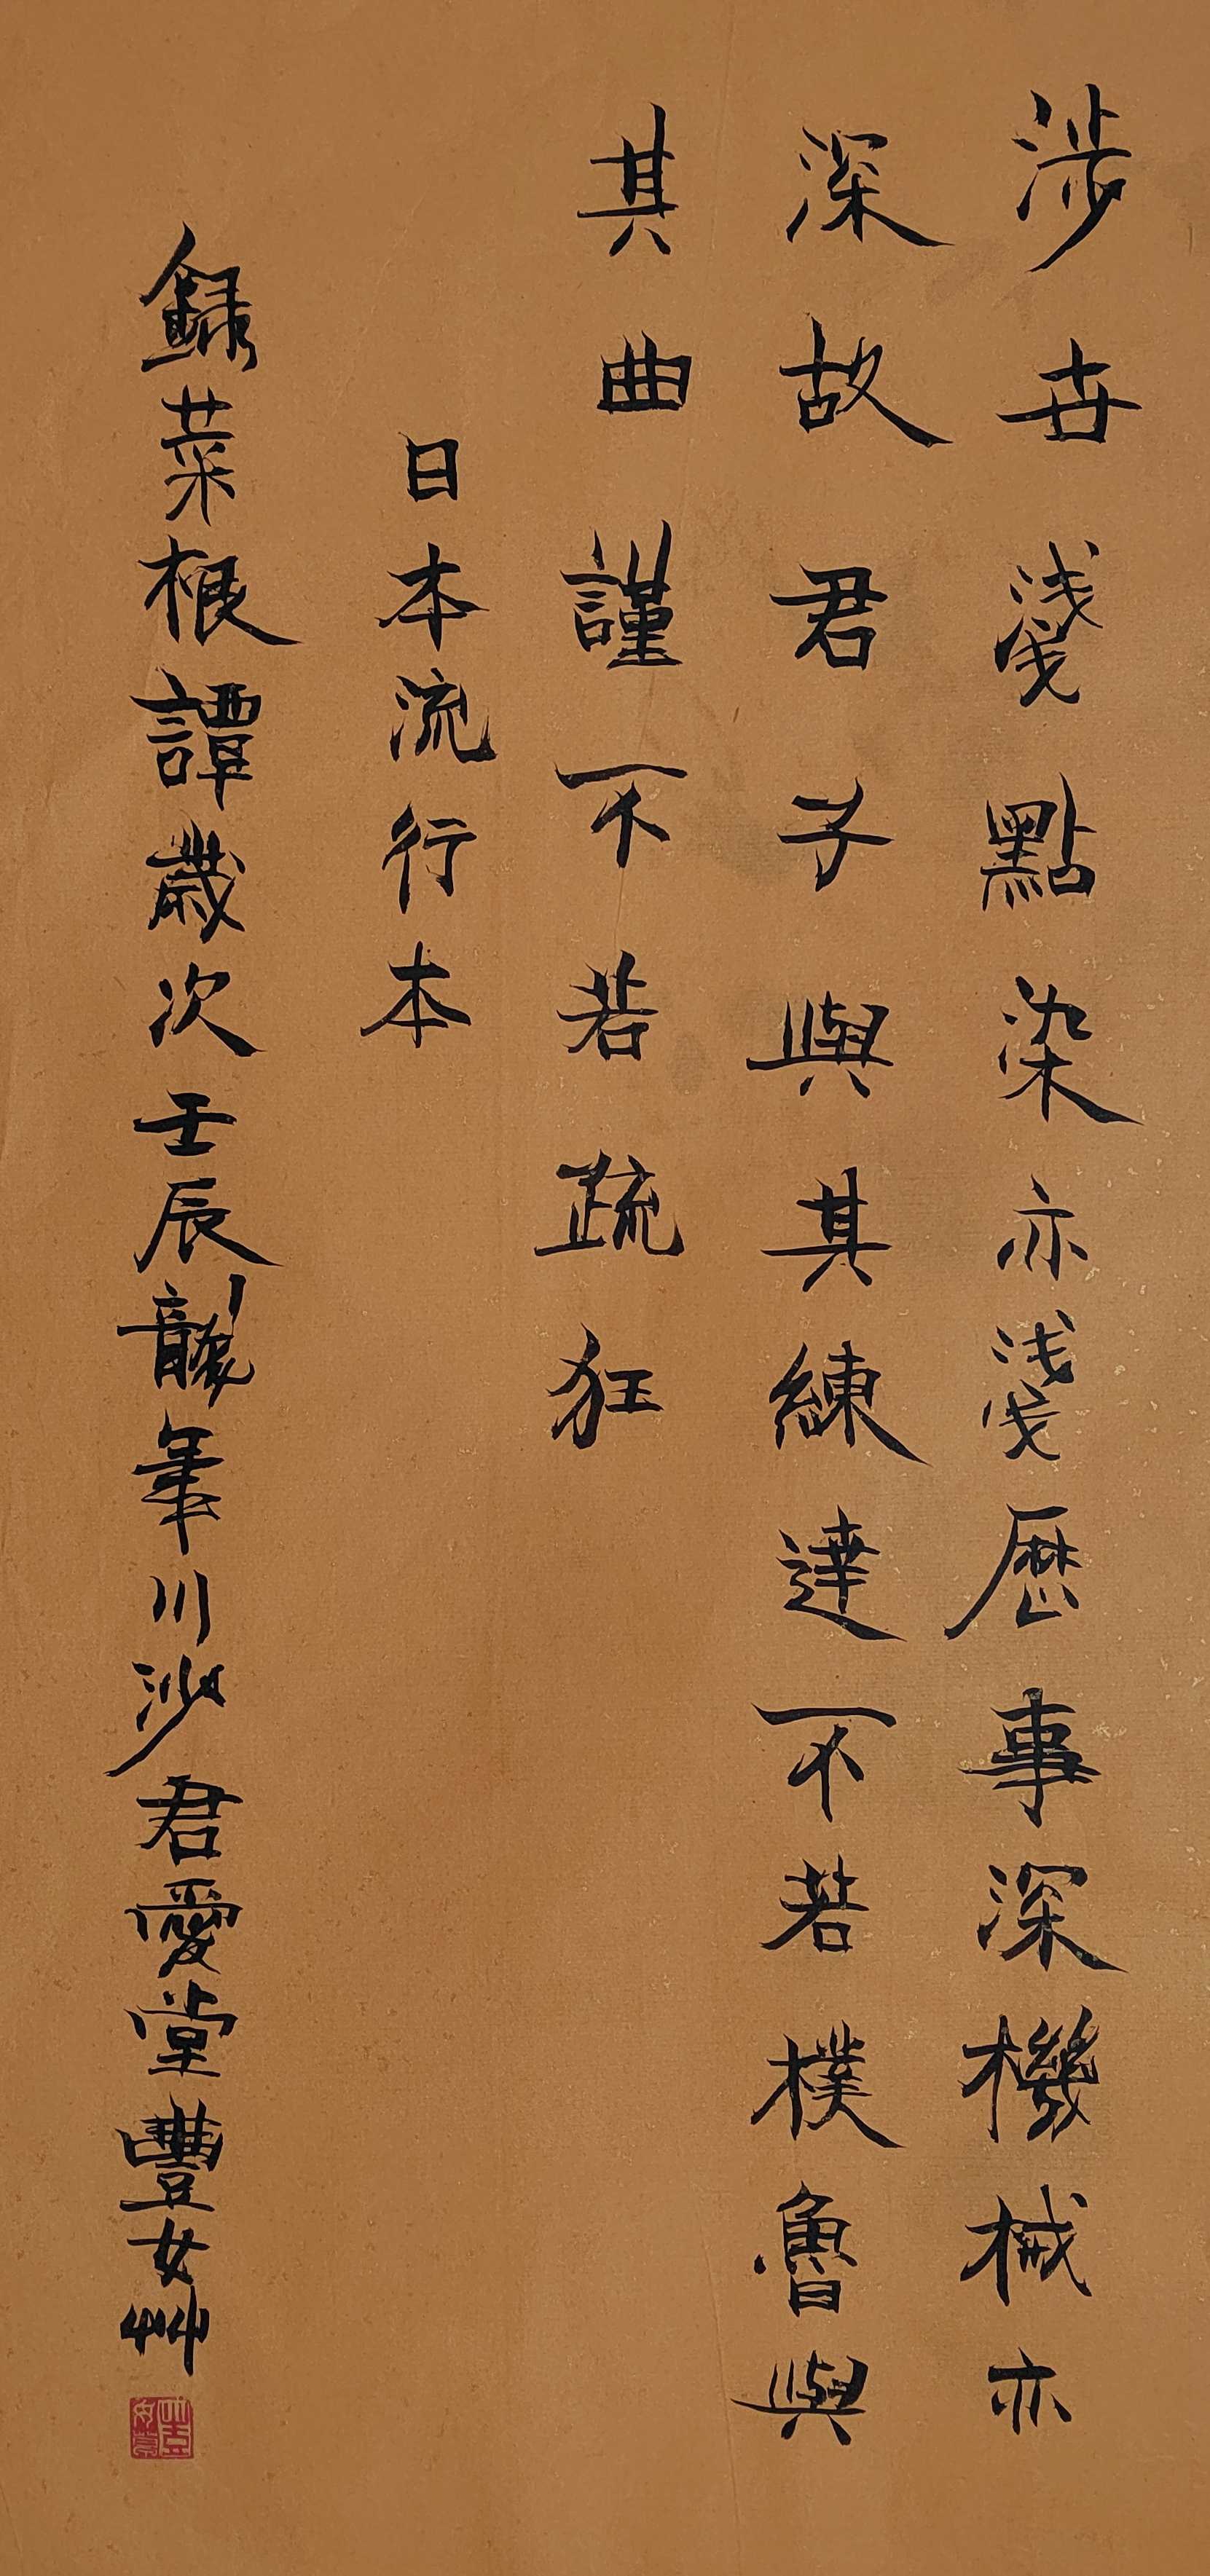 涉世淺點染亦淺歷事深機械亦
深故君子與其練達不若樸魯與
其曲謹不若疏狂
日本流行本
錄菜根譚歲次壬辰龍年川沙君愛堂豐女艸